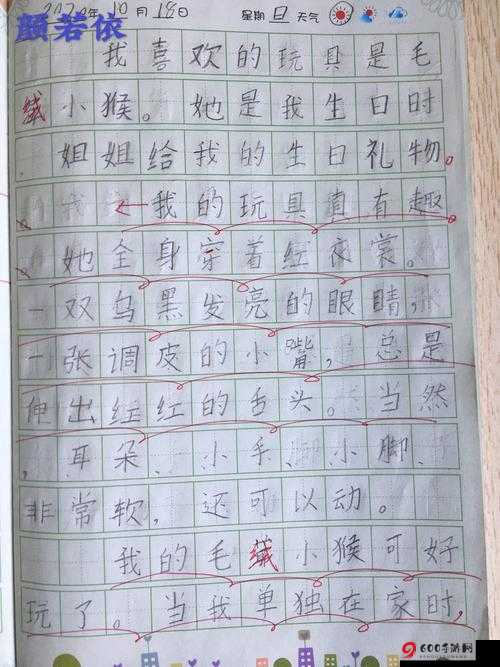 2020年10月18日 星期日 天气
颜若依
我喜欢的玩具是毛
绒小猴。她是我生日时
,姐姐给我的生日礼物。
我的玩具真有趣
她全身穿着红衣裳。
一双乌黑发亮的眼睛,
一张调皮的小嘴,总是
伸出红红的舌头。当然
,耳朵、小手、小脚、
非常软,还可以动。
我的毛绒小猴可好
玩了。当我单独在家时,
600手游网